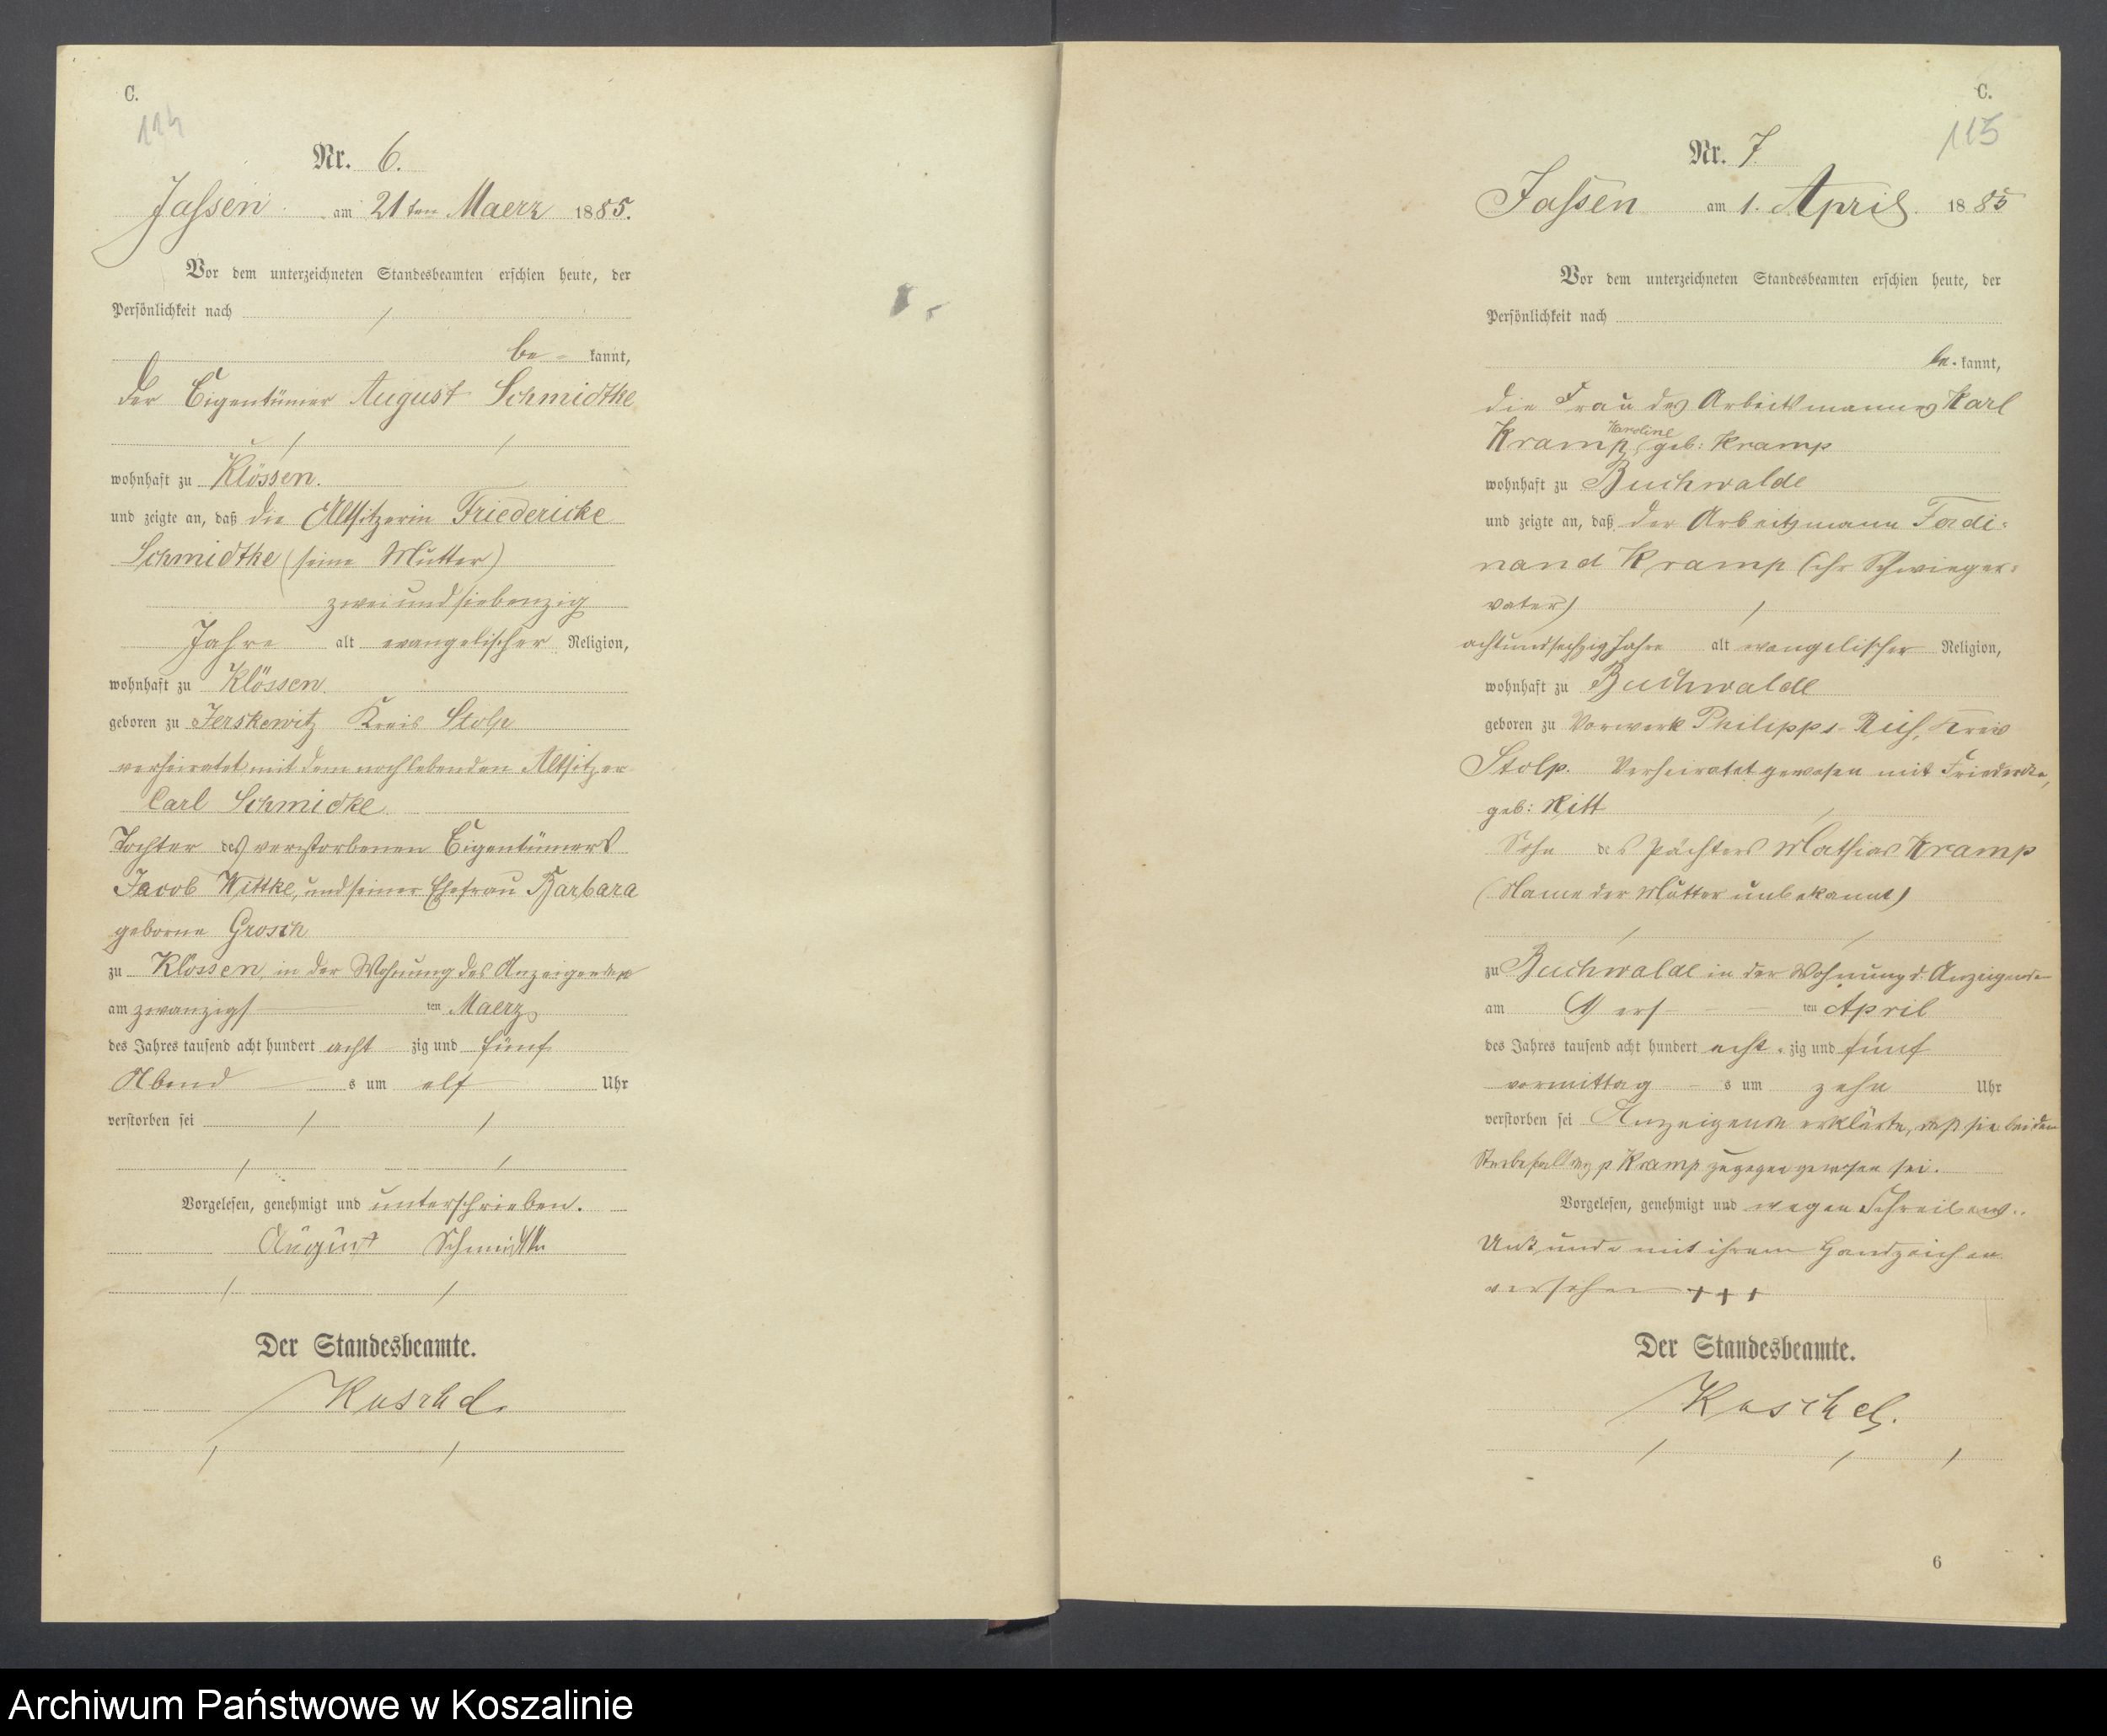 C.
114
Nr. 6.
Jassen am 21ten Maerz 1885.
Vor dem unterzeichneten Standesbeamten erschien heute, der
Persönlichkeit nach
be- kannt,
der Eigentümer August Schmidtke
wohnhaft zu Klössen.
und zeigte an, daß die Altsitzerin Friedericke
Schmidtke (seine Mutter)
zweiundsiebenzig
Jahre alt evangelischer Religion,
wohnhaft zu Klössen
geboren zu Jerskewitz Kreis Stolp
verheiratet mit dem noch lebenden Altsitzer
Carl Schmidke
Tochter des verstorbenen Eigentümers
Jacob Wittke, und seiner Ehefrau Barbara
geborne Grosch
zu Klössen, in der Wohnung des Anzeigenden
am zwanzigs ten Maerz
des Jahres tausend acht hundert acht zig und fünf
Abend s um elf Uhr
verstorben sei
Vorgelesen, genehmigt und unterschrieben.
August Schmidtke
Der Standesbeamte.
Kuschel.
C.
115
Nr. 7
Jassen am 1. April 1885
Vor dem unterzeichneten Standesbeamten erschien heute, der
Persönlichkeit nach
be- kannt,
die Frau des Arbeitsmannes Karl
Karoline
Kramp, geb: Kramp
wohnhaft zu Buchwalde
und zeigte an, daß der Arbeitsmann Ferdi-
nand Kramp (ihr Schwieger-
vater)
achtundsechzig Jahre alt evangelischer Religion,
wohnhaft zu Buchwalde
geboren zu Vorwerk Philipps-, Kreis
Stolp. Verheiratet gewesen mit Friedericke,
geb: Kitt
Sohn des Pächters Mathias Kramp
(Name der Mutter unbekannt)
zu Buchwalde in der Wohnung d. Anzeigende
am ers ten April
des Jahres tausend acht hundert acht zig und fünf
vormittag s um zehn Uhr
verstorben sei Anzeigende erklärte, daß sie bei dem
Sterbefall des p Kramp zugegen gewesen sei.
Vorgelesen, genehmigt und wegen Schreibens-
Unkunde mit ihrem Handzeichen
versehen +++
Der Standesbeamte.
Kuschel.
6
Archiwum Państwowe w Koszalinie